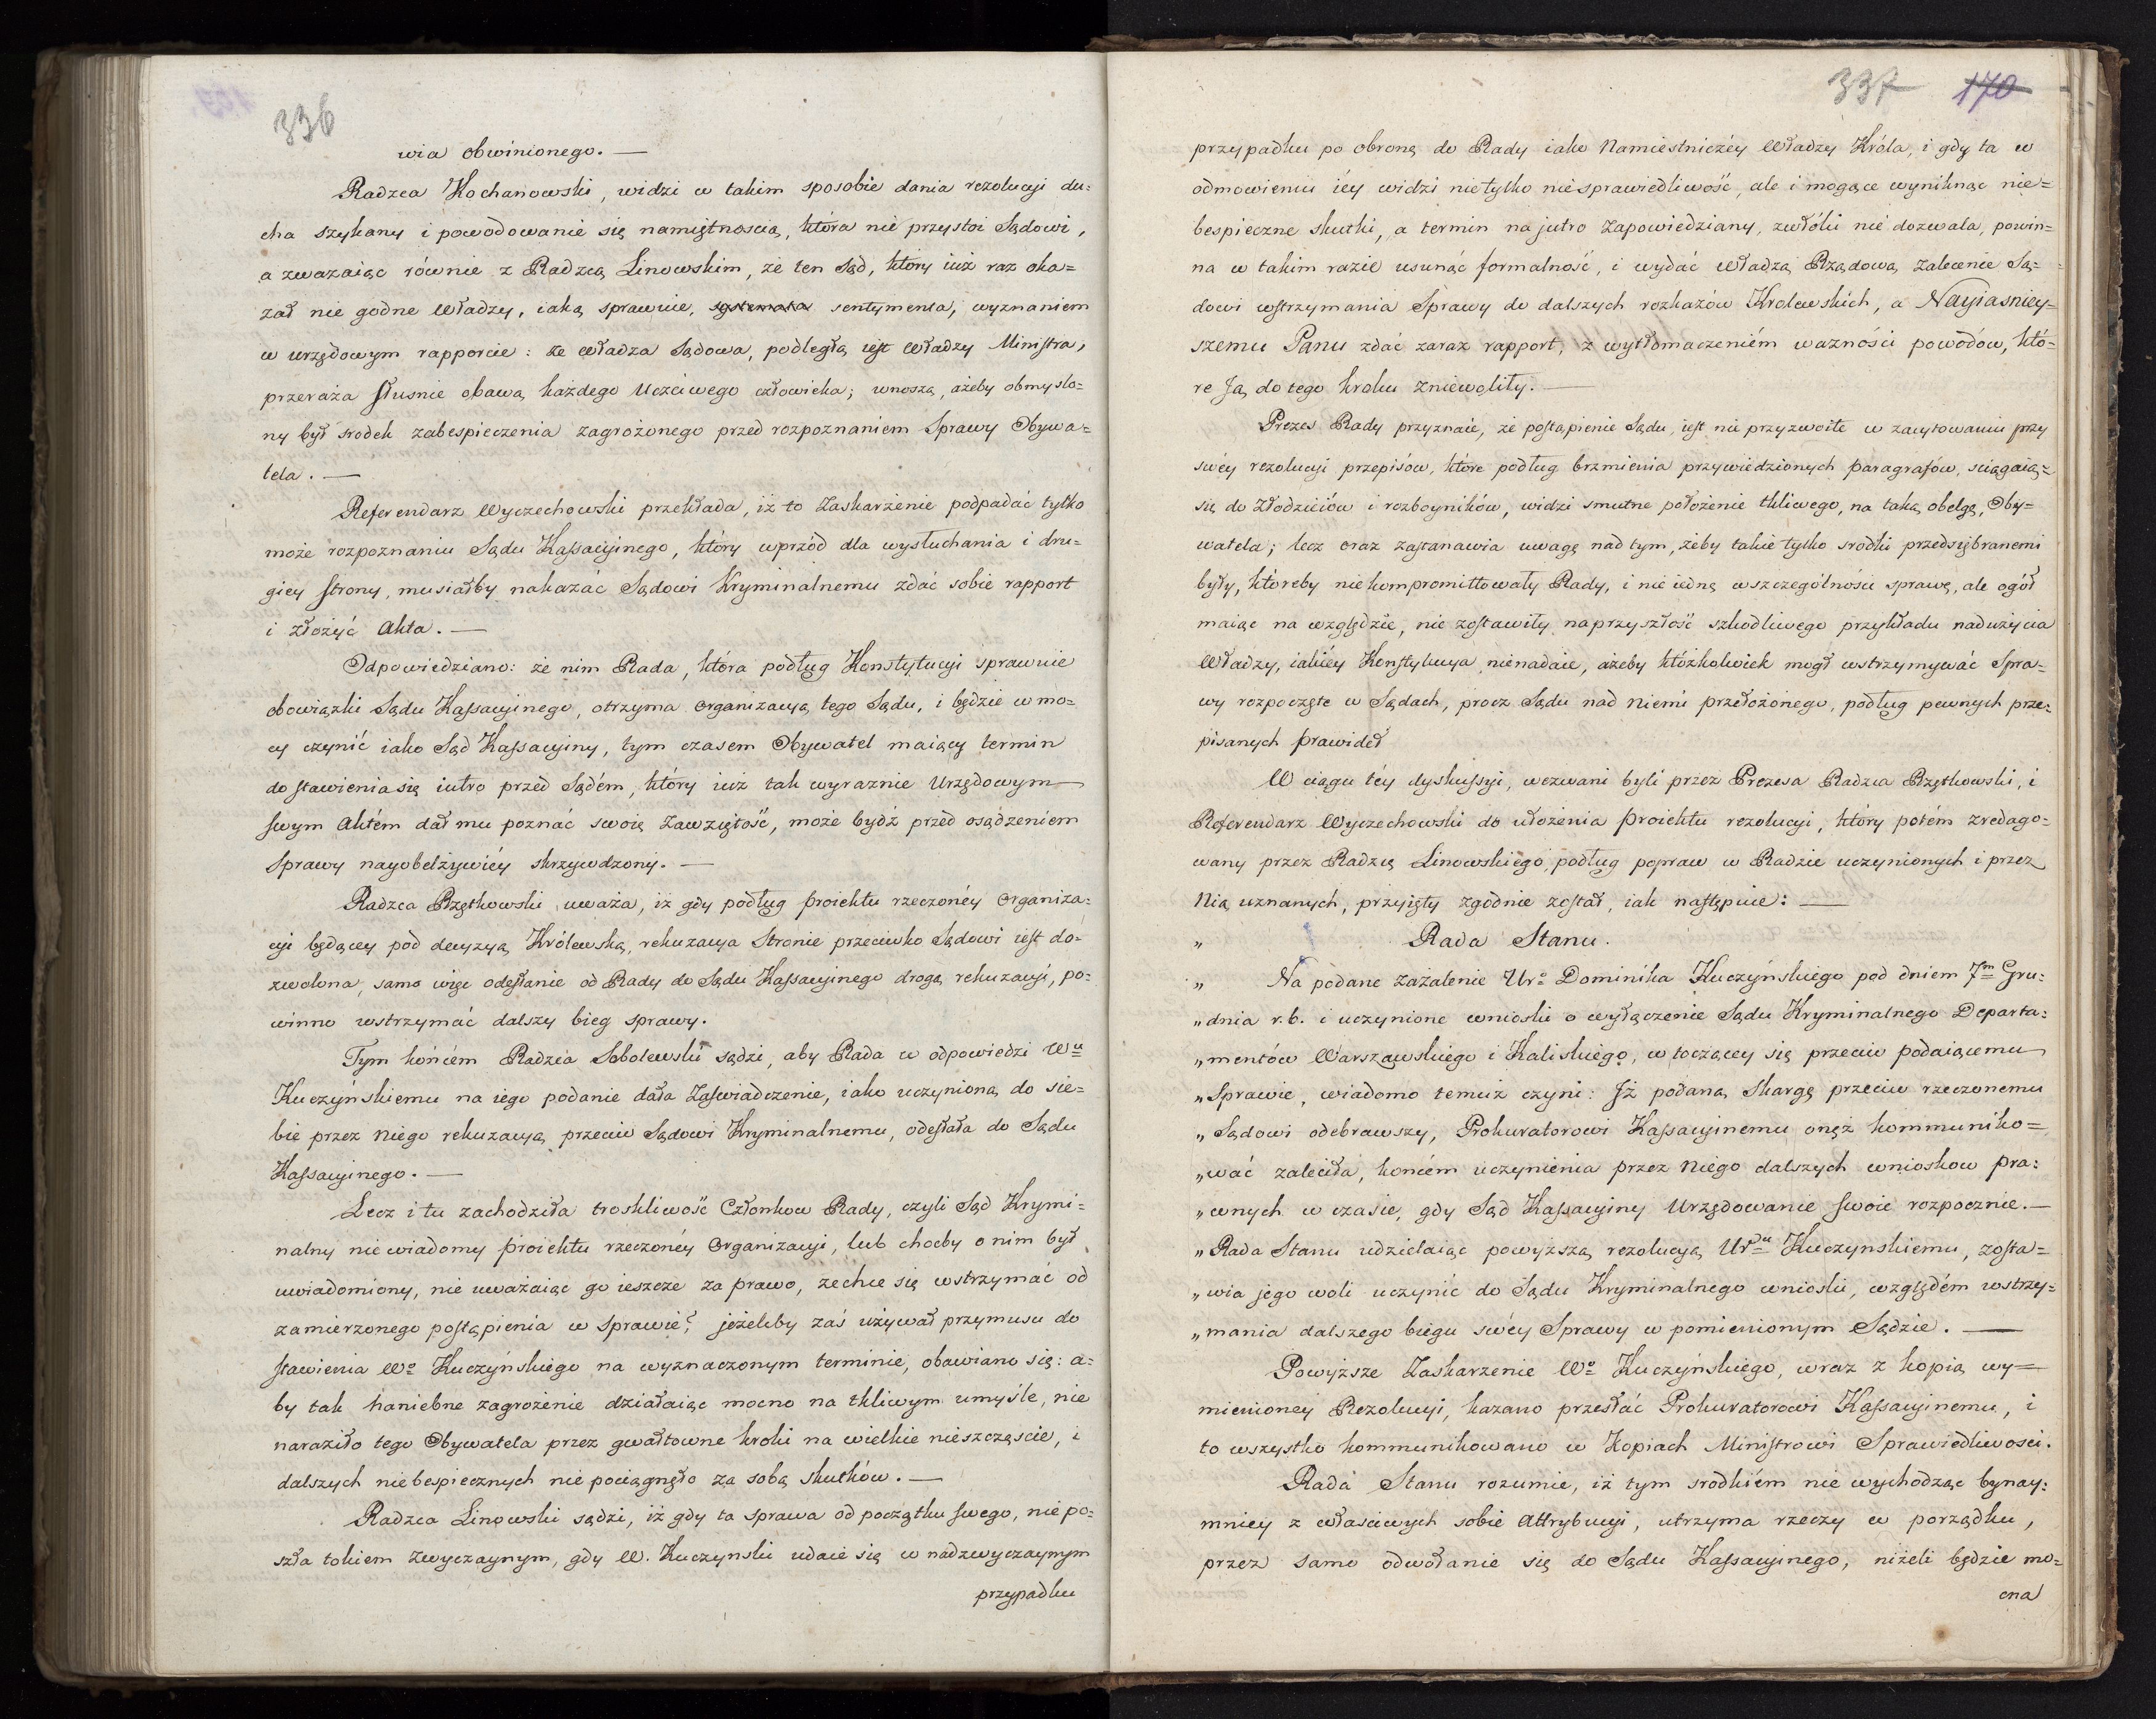 336
wia obwinionego. —
Radzca Kochanowski, widzi w takim sposobie dania rezolucyi du=
cha szykany i powodowanie się namiętnoscią, która nie przystoi Sądowi,
a zwazaiąc równie z Radzcą Linowskim, ze ten Sąd, który iuż raz oka=
zał nie godne Władzy, iaką sprawuie, systemata sentymenta, wyznaniem
w urzędowym rapporcie: że Władza Sądowa, podległą iest Władzy Ministra,
przeraża słusnie obawą każdego Uczciwego człowieka; wnoszą, ażeby obmyslo=
ny był srodek zabespieczenia zagrożonego przed rozpoznaniem Sprawy Obywa=
tela. —
Referendarz Wyczechowski przekłada, iż to Zaskarżenie podpadać tylko
może rozpoznaniu Sądu Kassacyinego, który wprzód dla wysłuchania i dru=
giey strony, musiałby nakazać Sądowi Kryminalnemu zdać sobie rapport
i złożyć Akta. —
Odpowiedziano: że nim Rada, która podług Konstytucyi sprawuie
obowiązki Sądu Kassacyinego, otrzyma organizacyą tego Sądu, i będzie w mo=
cy czynić iako Sąd Kassacyiny, tym czasem Obywatel maiący termin
do stawienia się iutro przed Sądem, który iuż tak wyraznie Urzędowym
swym Aktém dał mu poznać swoię Zawziętość, może bydź przed osądzeniem
Sprawy nayobelżywiéy skrzywdzony. —
Radzca Rzętkowski uważa, iż gdy podług proiektu rzeczonéy organiza=
cyi będącey pod decyzyą Królewską, rekuzacya Stronie przeciwko Sądowi iest do=
zwolona, samo więc odesłanie od Rady do Sądu Kassacyinego drogą rekuzacyi, po=
winno wstrzymać dalszy bieg sprawy.
Tym końcém Radzca Sobolewski sądzi, aby Rada w odpowiedzi Wu
Kuczyńskiemu na iego podanie dała Zaswiadczenie, iako uczynioną do sie=
bie przez Niego rekuzacyą przeciw Sądowi Kryminalnemu, odesłała do Sądu
Kassacyinego. —
Lecz i tu zachodziła troskliwość Członkow Rady, czyli Sąd Krymi=
nalny nie wiadomy proiektu rzeczonéy Organizacyi, lub choćby o nim był
uwiadomiony, nie uważaiąc go ieszcze za prawo, zechce się wstrzymać od
zamierzonego postąpienia w Sprawie? jeżeliby zaś używał przymusu do
stawienia Wo Kuczyńskiego na wyznaczonym terminie, obawiano się: a=
by tak haniebne zagrożenie działaiąc mocno na tkliwym umyśle, nie
naraziło tego Obywatela przez gwałtowne kroki na wielkie nieszczęscie, i
dalszych niebespiecznych nie pociągnęło za sobą skutków. —
Radzca Linowski sądzi, iż gdy ta sprawa od początku swego, nie po=
szła tokiem Zwyczaynym, gdy W. Kuczynski udaie się w nadzwyczaynym
przypadku
337 170
przypadku po obronę do Rady iako Namiestniczéy Władzy Króla, i gdy ta w
odmowieniu iéy widzi nietylko niesprawiedliwość, ale i mogące wyniknąc nie=
bespieczne skutki, a termin na jutro Zapowiedziany, zwłóki nie dozwala, powin=
na w takim razie usunąć formalność, i wydać Władzą Rządową Zalecenie Są=
dowi wstrzymania Sprawy do dalszych rozkazów Krolewskich, a Nayiasniey=
szemu Panu zdać zaraz rapport, z wytłomaczeniém wazności powodów, któ=
re Ją do tego kroku zniewoliły. —
Prezes Rady przyznaie, że postąpienie Sądu, iest nie przyzwoite w zacytowaniu przy
swéy rezolucyi przepisów, które podług brzmienia przywiedzionych paragrafów, sciągaią=
się do złodzieiów i rozboyników, widzi smutne położenie tkliwego, na taką obelgę, Oby=
watela; lecz oraz zastanawia uwagę nad tym, żeby takie tylko srodki przedsiębranemi
były, któreby niekompromittowały Rady, i nie iedną w szczególności sprawę, ale ogół
maiąc na względzie, nie zostawiły naprzyszłość szkodliwego przykładu nadużycia
Władzy, iakiéy Konstytucya nienadaie, ażeby któżkolwiek mogł wstrzymywać Spra=
wy rozpoczęte w Sądach, procz Sądu nad niemi przełożonego, podług pewnych prze=
pisanych prawideł
W ciągu téy dyskussyi, wezwani byli przez Prezesa Radzca Rzętkowski, i
Referendarz Wyczechowski do ułożenia proiektu rezolucyi, który potém zredago=
wany przez Radzcę Linowskiego, podług popraw w Radzie uczynionych i przez
Nią uznanych, przyięty zgodnie został, iak następuie: —
„ Rada Stanu.
„ Na podane zażalenie Uro Dominika Kuczyńskiego pod dniem 7m Gru=
„dnia r.b. i uczynione wnioski o wyłączenie Sądu Kryminalnego Departa=
„mentów Warszawskiego i Kaliskiego, w toczącey się przeciw podaiącemu
„Sprawie, wiadomo temuż czyni: Iż podaną Skargę przeciw rzeczonemu
„Sądowi odebrawszy, Prokuratorowi Kassacyinemu onęż kommuniko=
„wać zaleciła, końcém uczynienia przez Niego dalszych wnioskow pra=
„wnych w czasie, gdy Sąd Kassacyiny Urzędowanie swoie rozpocznie. —
„Rada Stanu udzielaiąc powyższą rezolucyą Urmu Kuczynskiemu, zosta=
„wia jego woli uczynić do Sądu Kryminalnego wnioski, względém wstrzy=
„mania dalszego biegu swéy Sprawy w pomienionym Sądzie. —
Powyższe Zaskarzenie Wo Kuczyńskiego, wraz z kopią wy=
mienioney Rezolucyi, kazano przesłać Prokuratorowi Kassacyinemu, i
to wszystko kommunikowano w Kopiach Ministrowi Sprawiedliwosci.
Rada Stanu rozumie, iż tym srodkiém nie wychodząc bynay=
mniey z własciwych sobie Attrybucyi, utrzyma rzeczy w porządku,
przez samo odwołanie się do Sądu Kassacyinego, niżeli będzie mo=
cna